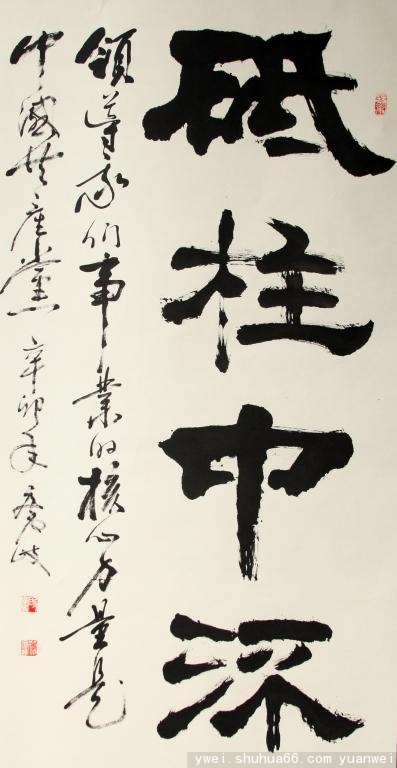 砥柱中流
领导我们事业的核心力量是
中国共产党 辛卯年 
ywei.shuhua66.com yuanwei